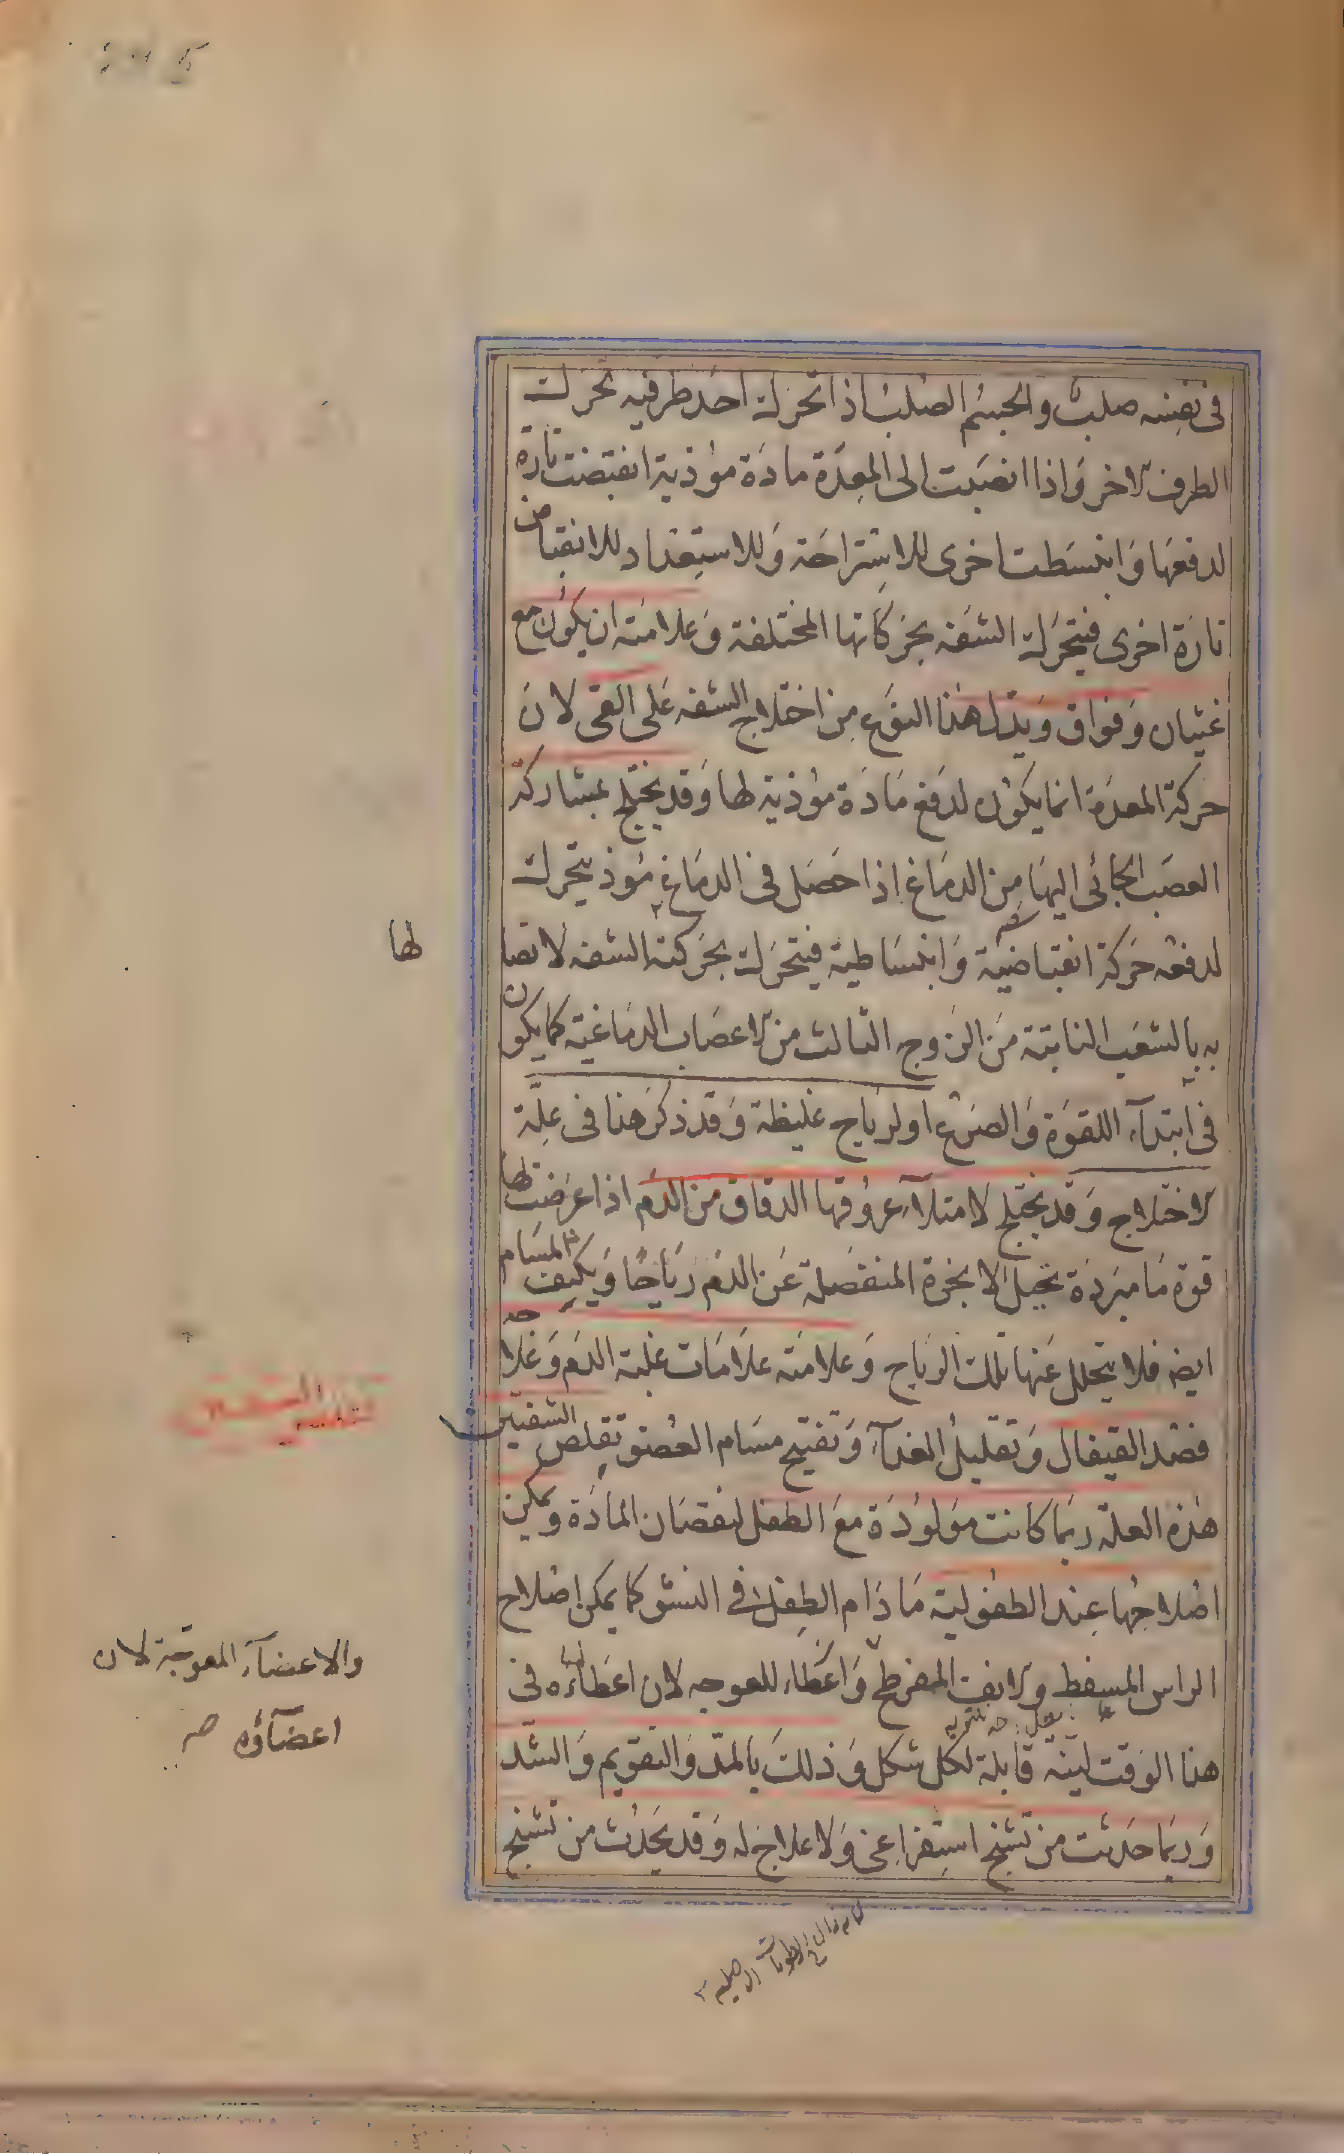 فى نفسه صلب والجسم الصلب اذا تحرك احد طرفيه تحرك
الطرف الاخر واذا انصبت الى المعدة مادة موذية انقبضت تارة
لدفعها وانبسطت اخرى للاستراحة وللاستعداد للانقباض
تارة اخرى فيتحرك الشفة بحركاتها المختلفة وعلامته ان يكون مع
غثيان وفواق ويدل هذا النوع من اختلاج الشفه على القى لان
حركة المعدة انما يكون لدفع مادة موذية لها وقد يختلج بمشاركة
العصب الجائى اليها من الدماغ اذا حصل فى الدماغ موذ يتحرك
لدفعه حركة انقباضية وانبساطية فيتحرك بحركته الشفه لاتصا
لها
به بالشعب النابتة من الزوج الثالث من الاعصاب الدماغية كما يكون
فى ابتدآء اللقوة والصرع او لرياح غليظة وقد ذكر هذا فى علة
الاختلاج وقد يختلج لامتلآء عروقها الدقاق من الدم اذا عرضت لها
قوة ما مبردة تحيل الابخرة المنفصلة عن الدم رياحا ويكثف المسام
ايضه فلا يتحلل عنها تلك الرياح وعلامته علامات غلبة الدم وعلاجه
فصد القيفال وتقليل الغذآء وتفتيح مسام العضو تقلص الشفتين
تقلص الشفتين
هذه العلة ربما كانت مولودة مع الطفل لنقصان المادة ويمكن
اصلاحها عند الطفولية ما دام الطفل فى النشو كما يمكن اصلاح
الراس المسفط والانف المفرطح واعطاء للعوجه لان اعطاءه فى
والاعضآء المعوجة لان
اعضآؤه صح
هذا الوقت لينة قابلة لكل شكل وذلك بالمد والتقويم والشد
وربما حدثت من تشنج استفراغى ولا علاج له وقد يحدث من تشنج